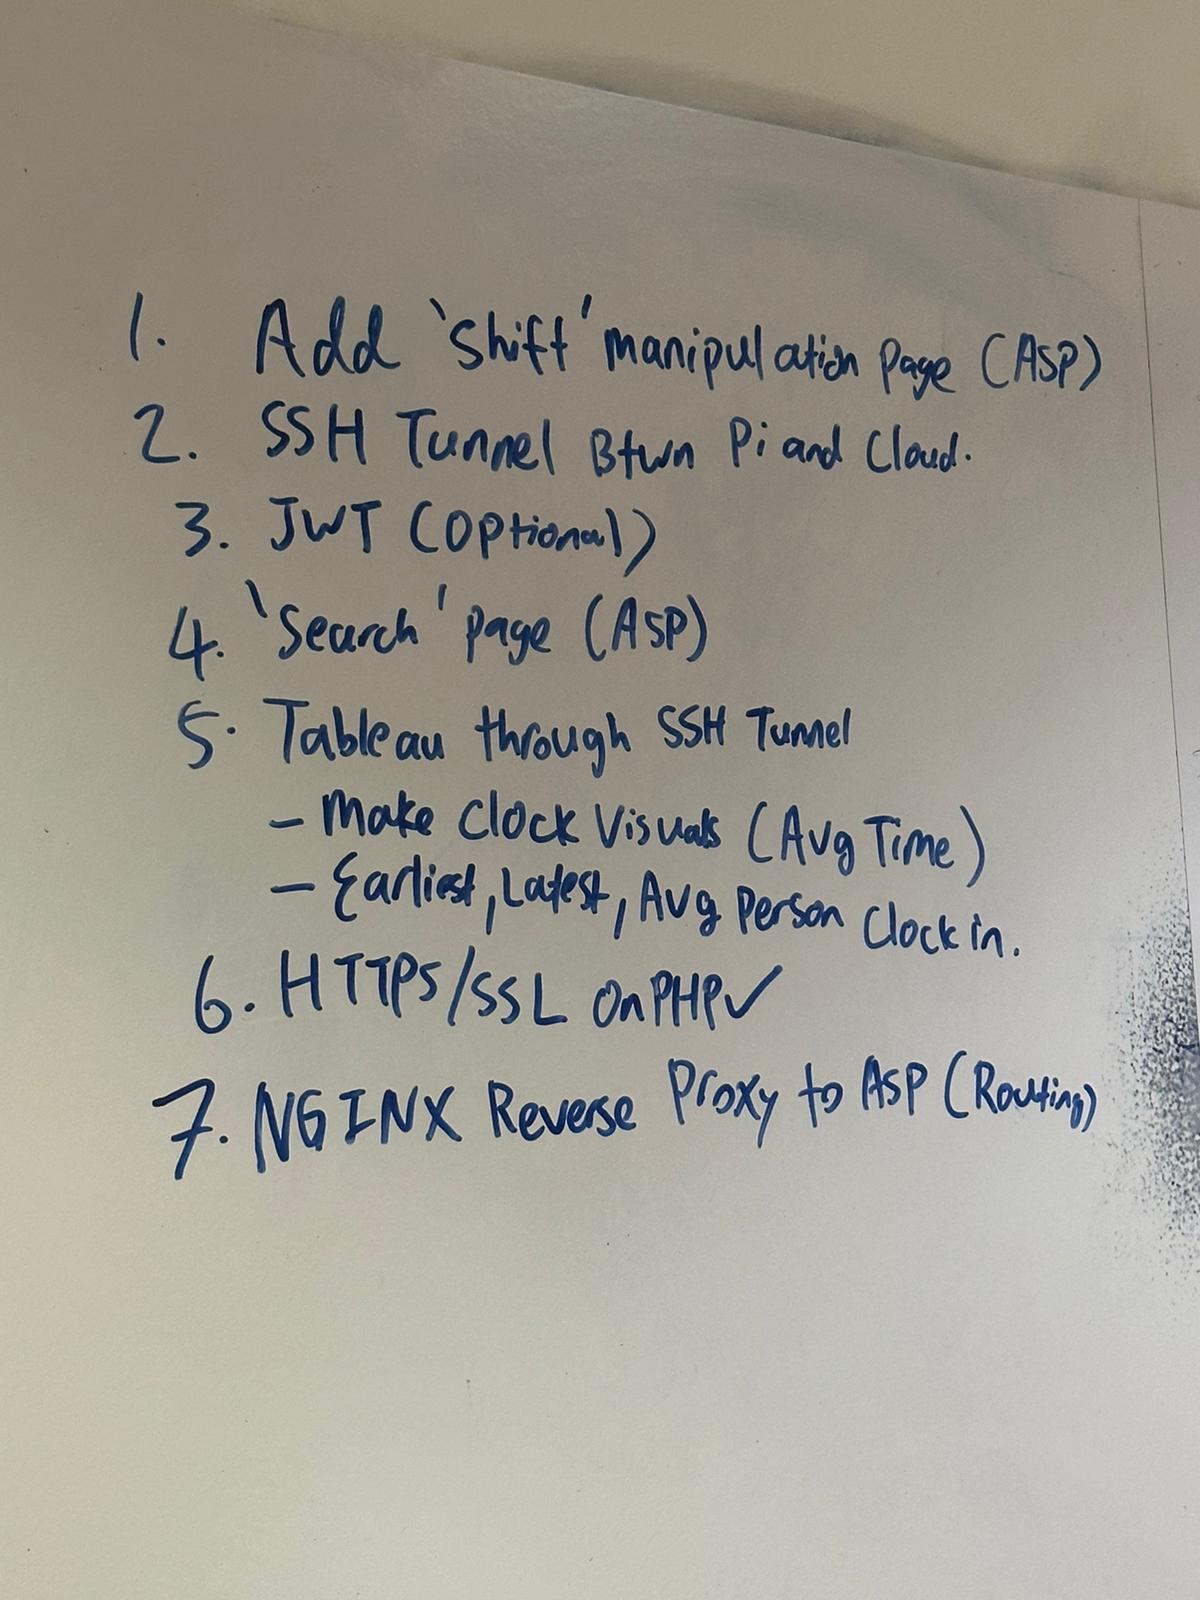 1. Add 'Shift' manipulation page (ASP)
2. SSH Tunnel Btwn Pi and Cloud.
3. JWT (Optional)
4. 'Search' page (ASP)
5. Tableau through SSH Tunnel
- Make Clock Visuals (Avg Time)
- Earliest, Latest, Avg Person Clock in.
6. HTTPS/SSL on PHP ✓
7. NGINX Reverse Proxy to ASP (Routing)